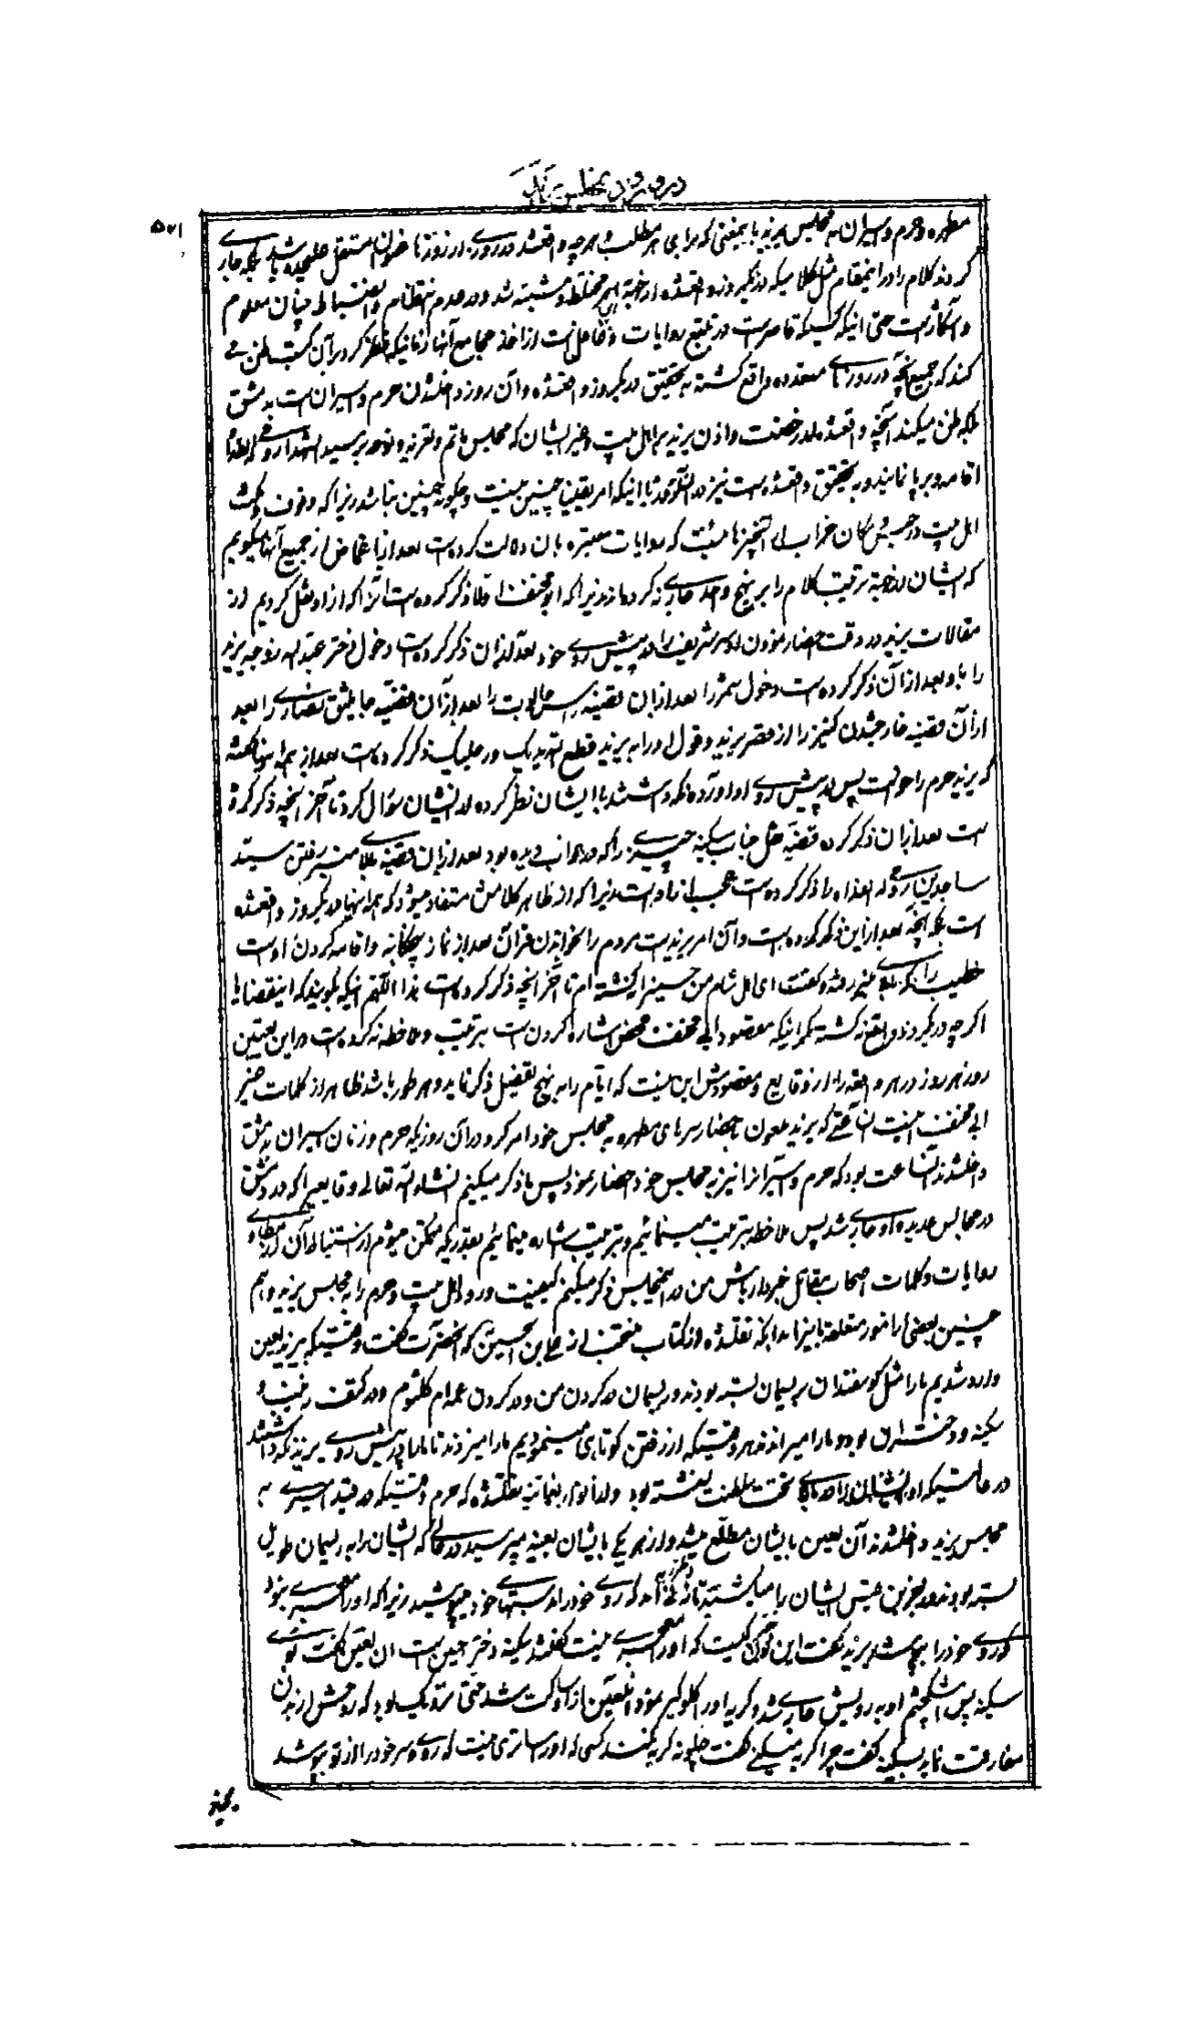 در ورود بمجلس یزید
۵۷۱
مطهره و حرم و اسیران به مجلس یزید باینمعنی که برای هر مطلب و هرچه واقعشد در روزی از روزها عنوان مستقل علیحده باشد بلکه جاری
کردند کلام را در اینمقام مثل کلامیکه در یکروز واقعشده از جهة مختلط و مشتبه شد و در عدم انتظام و انضباط چنان معلوم
و آشکار است حتی اینکه کسیکه قاصر است در تتبع روایات و غافل است از اخذ مجامع آنها زمانیکه نظر کرد در آن کتب ظن می
کند که جمیع آنچه در روزهای متعدده واقع گشته به تحقیق در یکروز واقعشده و آن روز داخلشدن حرم و اسیران است به دمشق
بلکه ظن میکند آنچه واقعشده از رخصت و اذن یزید بر اهل بیت و غیر ایشان که مجلس ماتم و تعزیه و نوحه بر سید الشهداء روحی له الفداء
اقامه و برپا نمایند و به تحقیق واقعشده است نیز در آنروز با اینکه امر یقینا چنین نیست و چگونه چنین باشد زیرا که وقوف و مکث
اهل بیت در حبس و مکان خراب از آنچیزهائیست که روایات معتبره بان دلالت کرده است بعد از اغماض از جمیع آنها میگویم
که ایشان از جهة ترتیب کلام را بر نهج واحد جاری نکرده‌اند زیرا که ابو مخنف اولا ذکر کرده است آنرا که از او نقل کردیم از
مقالات یزید در وقت احضار نمودن او سر شریف را در پیش روی خود بعد از آن ذکر کرده است دخول دختر عبدالله زوجه یزید
را باو بعد از آن ذکر کرده است دخول شمر را بعد از آن قضیه راس جالوت را بعد از آن قضیه جاثلیق نصاری را بعد
از آن قضیه خارجشدن کنیز را از قصر یزید و قول او را به یزید قطع الله یدیک و رجلیک ذکر کرده است بعد از همه اینها گفته
که یزید حرم را خواست پس در پیش روی او آورده نگه داشتند بایشان نظر کرده از ایشان سؤال کرد تا آخر آنچه ذکر کرده
است بعد از آن ذکر کرده قضیه نقل جناب سکینه چیزی را که در خواب دیده بود بعد از آن قضیه بالای منبر رفتن سید
ساجدین روحی له الفداء را ذکر کرده است عجب از ماو است زیرا که از ظاهر کلامش مستفاد میشود که همه اینها در یکروز واقعشده
است بلکه آنچه بعد از این ذکر کرده است و آن امر یزید است مردم را بخواندن قرآن بعد از نماز پنجگانه و اقامه کردن او است
خطیب را که بالای منبر رفته و گفت ای اهل شام من حسین را کشته ام تا آخر آنچه ذکر کرده است هذا اللهم اینکه بگویند که این قضایا
اگر چه در یکروز واقع نگشته مگر اینکه مقصود ابی مخنف محض اشاره کردن است بترتیب و ملاحظه نکرده است در این تعیین
روز هر روز در هر واقعه را از وقایع و مقصودش این نیست که ایام را به نهج تفصیل ذکر نماید و هر طور باشد ظاهر از کلمات خبر
ابی مخنف اینست ساعتی که یزید ملعون باحضار سرهای مطهره به مجلس خود امر کرد در آن روزیکه حرم و زنان اسیران به دمشق
داخلشدند آنساعت بود که حرم و اسیرانرا نیز به مجلس خود احضار نمود پس ما ذکر میکنیم انشاء الله تعالی وقایعی را که در دمشق
در مجالس عدیده او جاری شد پس ملاحظه بترتیب مینمائیم و بترتیب اشاره مینمائیم بقدریکه ممکن میشوم از استنباط آن از مطاوی
روایات و کلمات اصحاب مقاتل خبردار باش من در اینمجلس ذکر میکنم کیفیت ورود اهل بیت و حرم را به مجلس یزید و هم
چنین بعضی از امور متعلقه باینرا بدانکه نقلشده از کتاب منتخب از علی بن الحسین که آنحضرت گفت وقتیکه بیزید لعین
وارد شدیم ما را مثل گوسفندان بریسمان بسته بودند و ریسمان در گردن من و در گردن عمه‌ام کلثوم و در کتف زینب و
سکینه و دختران بود و ما را میراندند هر وقتیکه از رفتن کوتاهی مینمودیم ما را میزدند تا ما را در پیش روی یزید نگه داشتند
در حالتیکه او بالای تخت سلطنت نشسته بود و در انوار نعمانیه نقلشده که حرم وقتیکه در قید اسیری به
مجلس یزید داخلشدند آن لعین بایشان مطلع میشد و از هر یکی بایشان بعینه میپرسید در حالی که ایشان را به ریسمان طویل
بسته بودند و زجر بن قیس ایشان را میکشید تا زنی آمد که روی خود را با دستهای خود میپوشید زیرا که او را معجری نبود
که روی خود را بپوشد یزید گفت این زن کیست که او را معجری نیست گفتند سکینه دختر حسین است آن لعین گفت توئی
سکینه پس اشک چشم او به رویش جاری شد و گریه او را گلوگیر نمود آنلعین از او ساکت شد حتی نزدیک بود که روحش از بدن
مفارقت نماید به سکینه گفت چرا گریه میکنی گفت چگونه گریه نکند کسی که او را ساتری نیست که روی و سر خود را از تو بپوشد